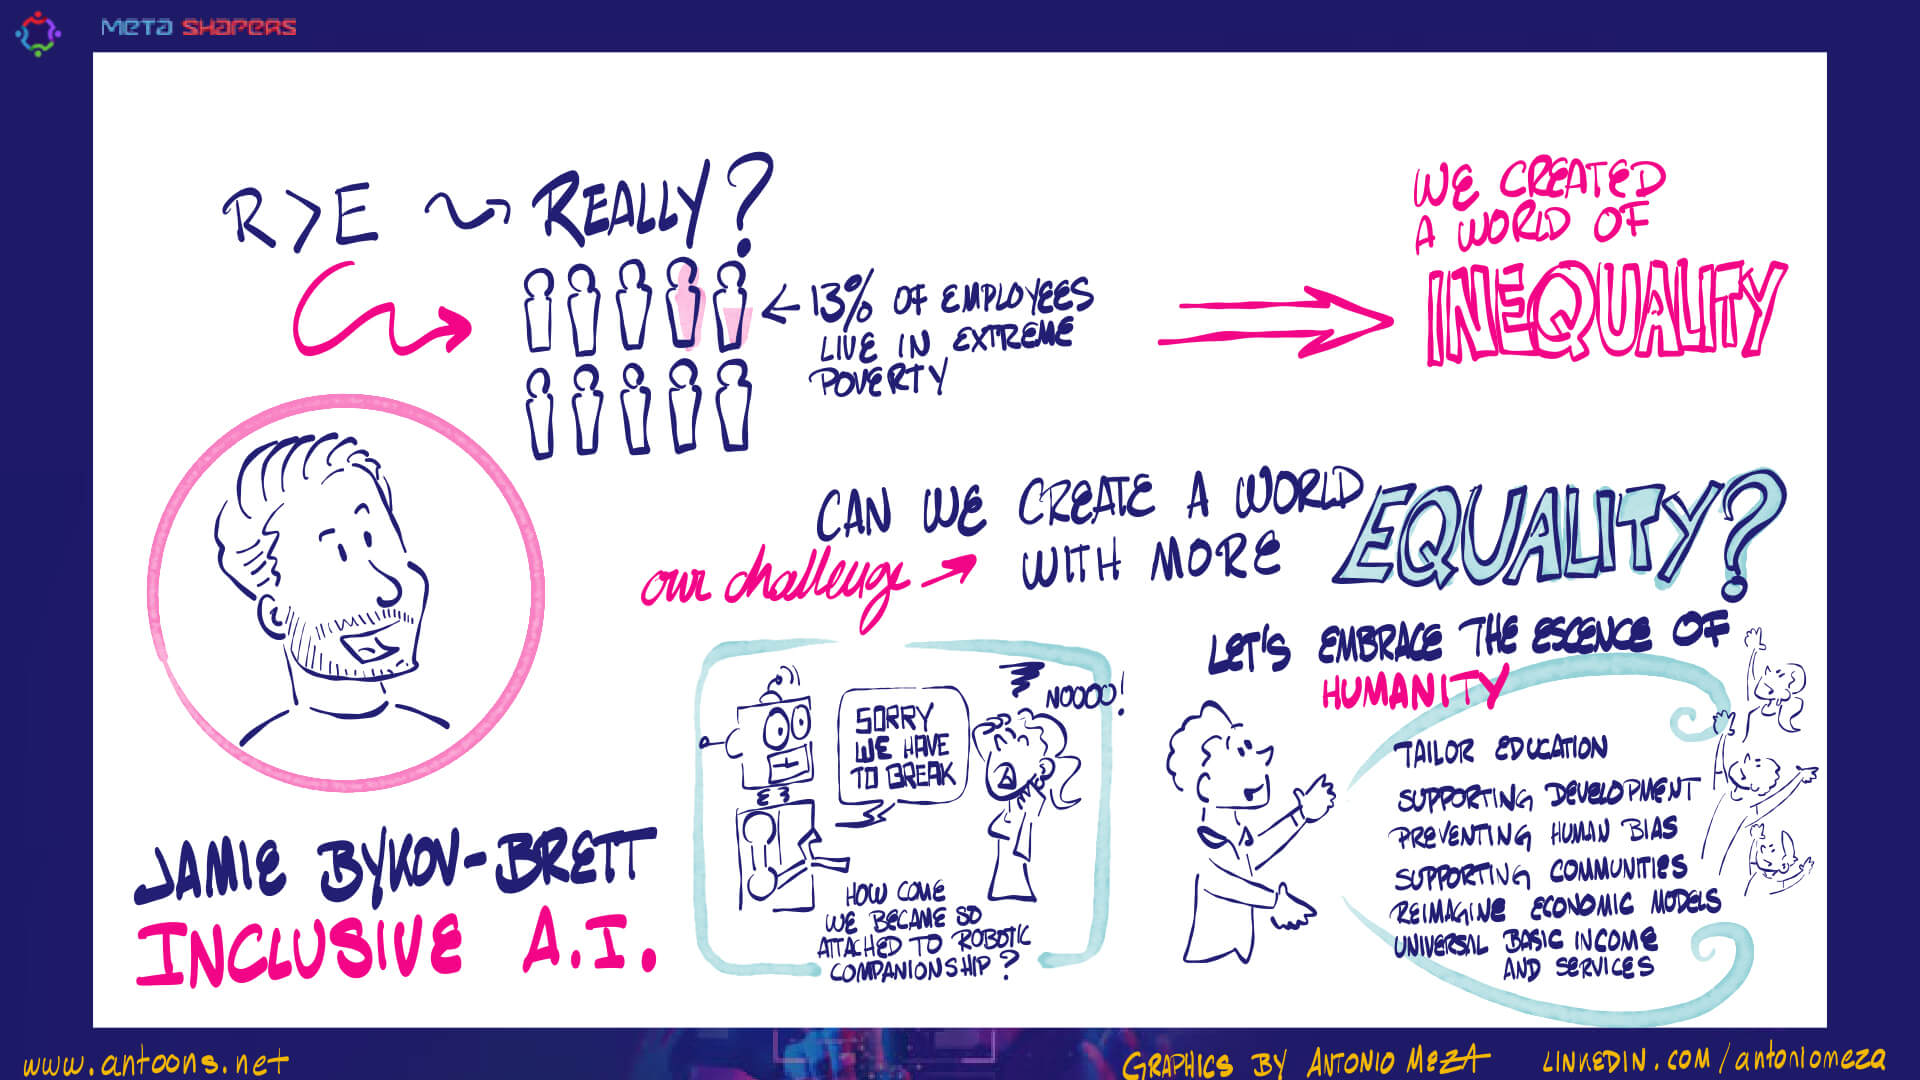 META SHAPERS
R > E
REALLY?
13% OF EMPLOYEES
LIVE IN EXTREME
POVERTY
WE CREATED
A WORLD OF
INEQUALITY
CAN WE CREATE A WORLD
WITH MORE
EQUALITY?
our challenge
JAMIE BYKOV-BRETT
INCLUSIVE A.I.
SORRY
WE HAVE
TO BREAK
NOOOO!
HOW COME
WE BECAME SO
ATTACHED TO ROBOTIC
COMPANIONSHIP?
LET'S EMBRACE THE ESCENCE OF
HUMANITY
TAILOR EDUCATION
SUPPORTING DEVELOPMENT
PREVENTING HUMAN BIAS
SUPPORTING COMMUNITIES
REIMAGINE ECONOMIC MODELS
UNIVERSAL BASIC INCOME
AND SERVICES
www.antoons.net
GRAPHICS BY ANTONIO MEZA
LINKEDIN.COM/antoniomeza